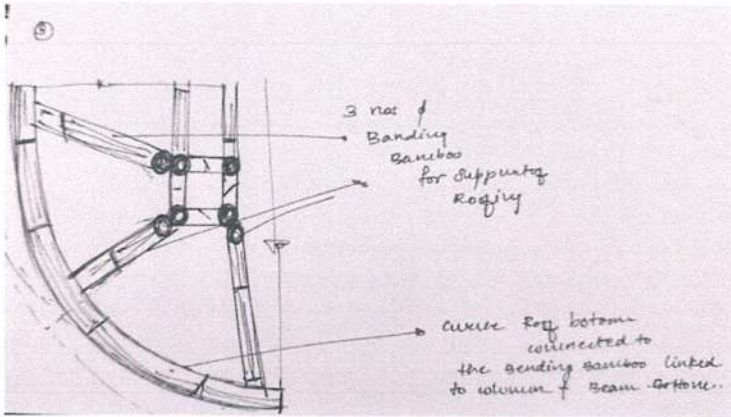 3 nos of
Banding
Bamboo
for Supporting
Roofing
curve Roof bottom
connected to
the Bending Bamboo linked
to column + Beam Bottom..